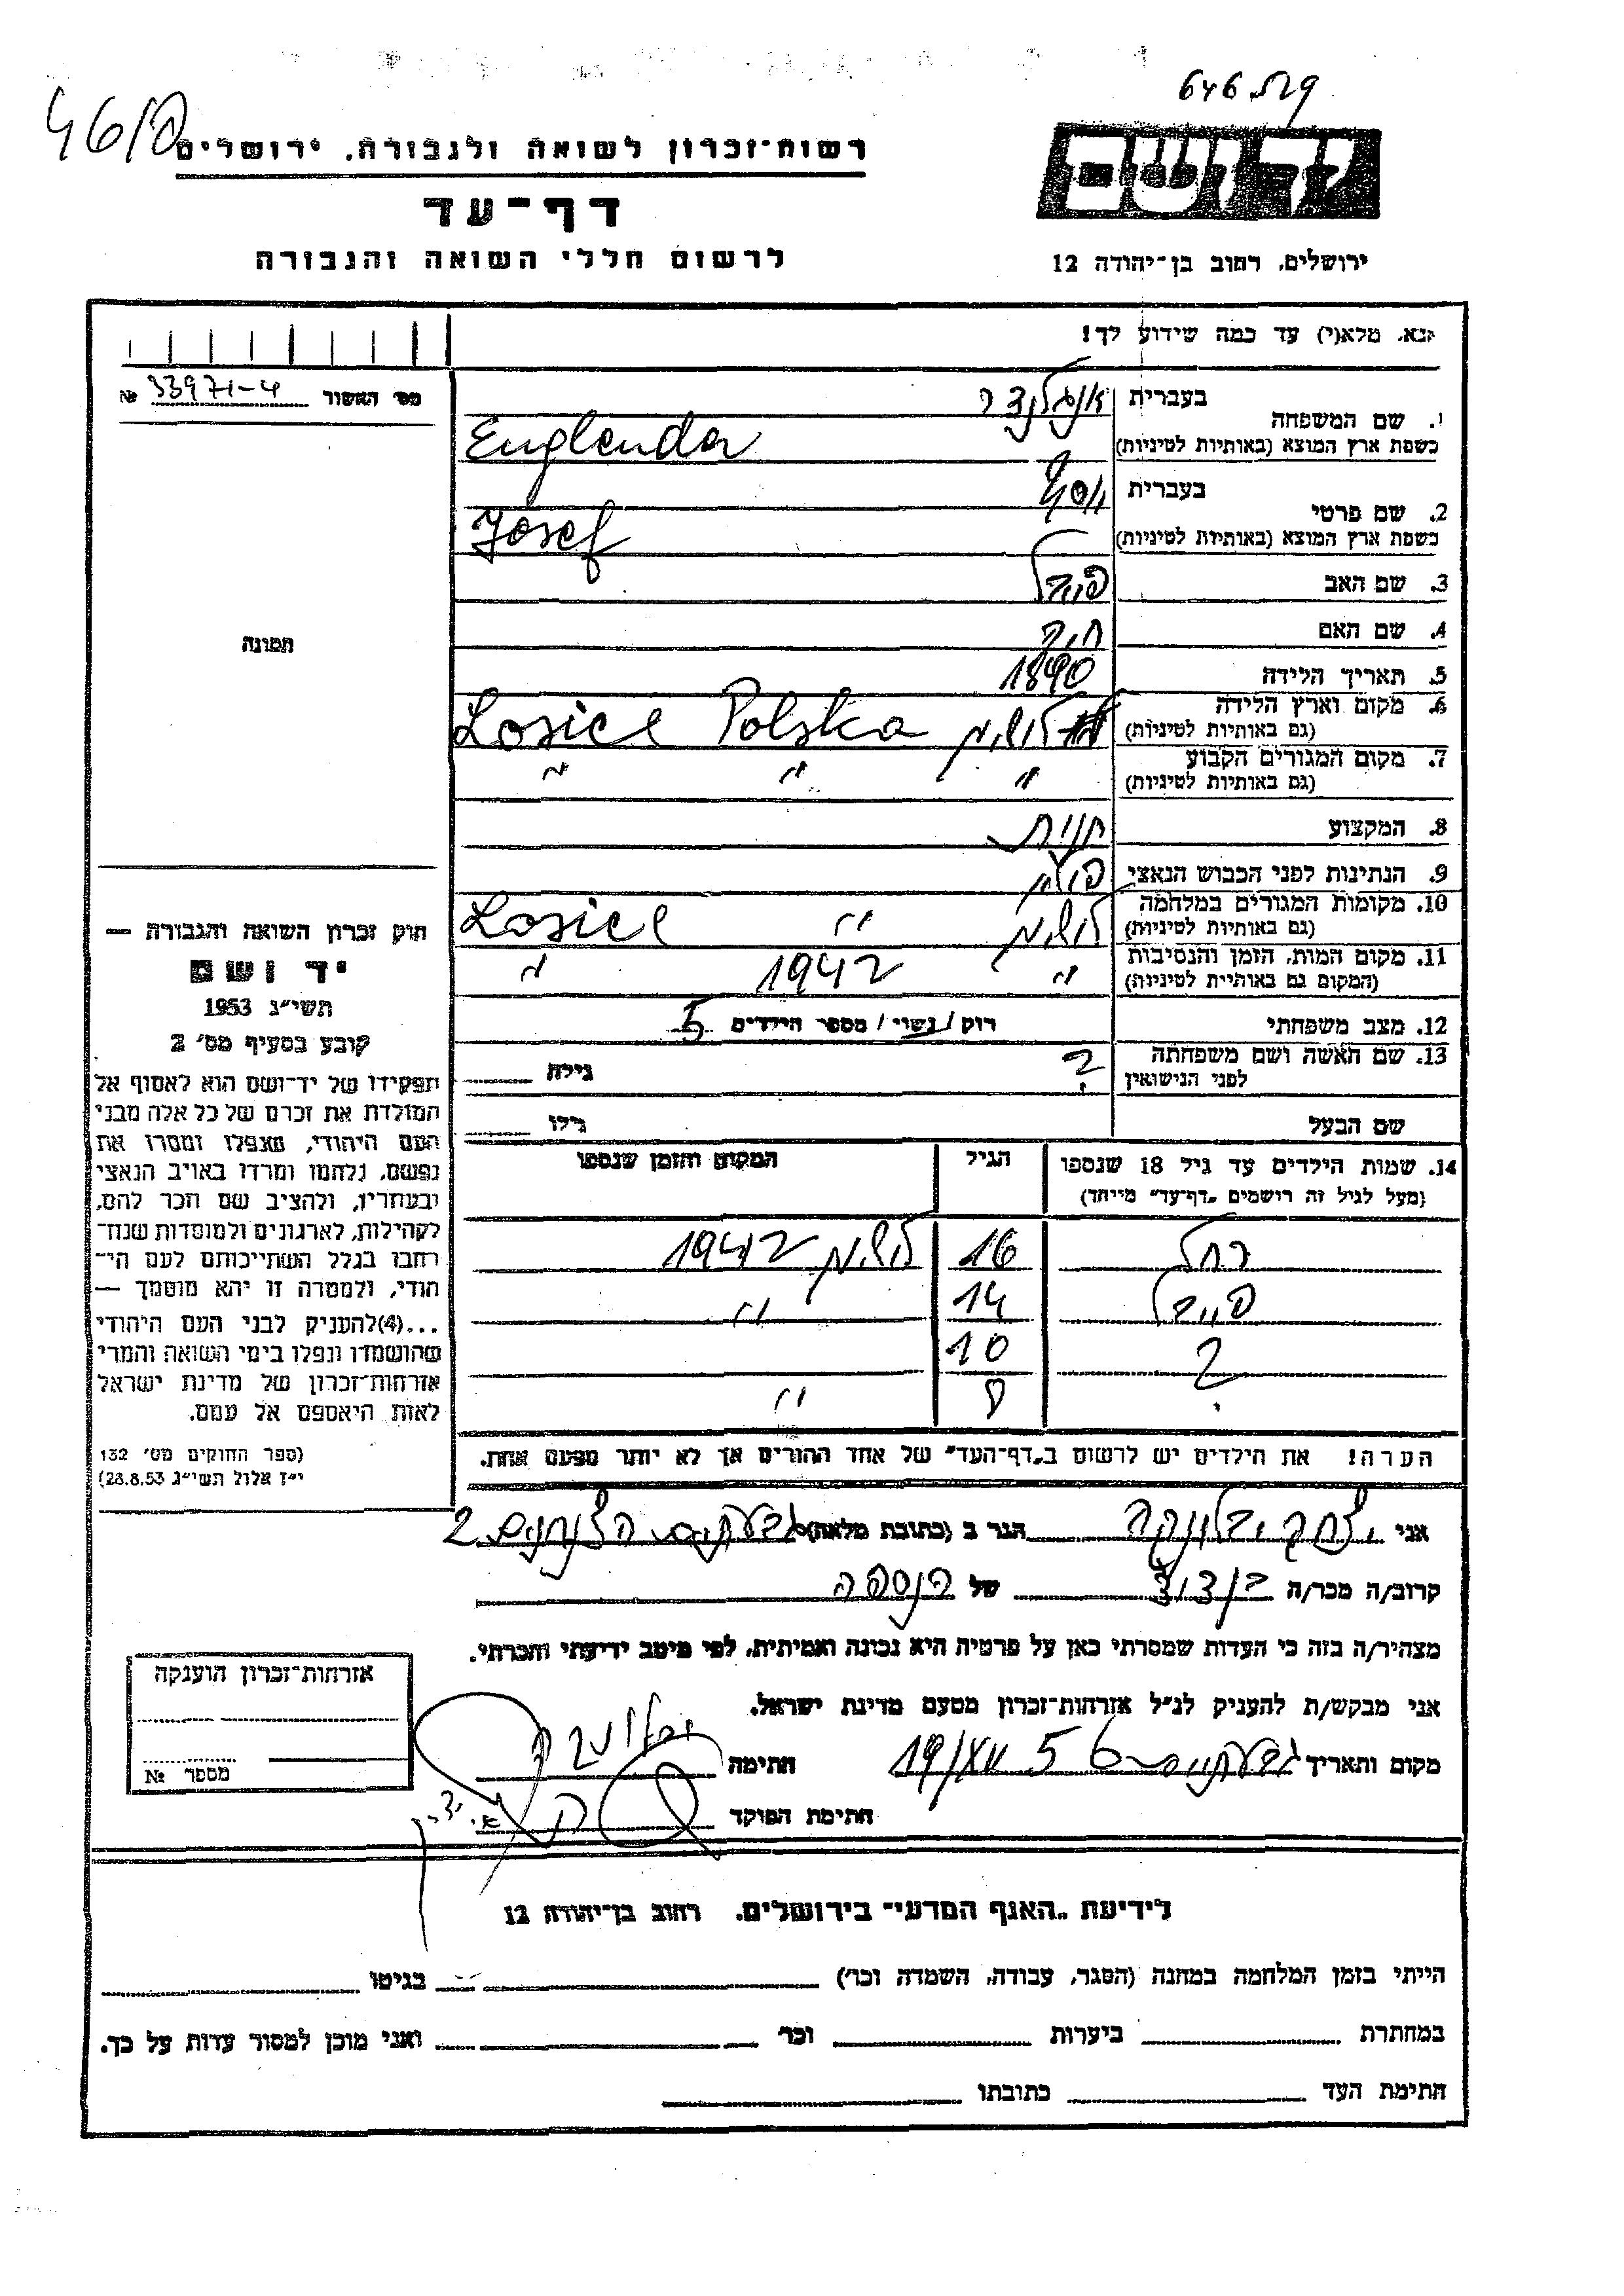 646
46/
רשות-זכרון לשואה ולגבורה, ירושלים
דף-עד
לרשום חללי השואה והגבורה
יד ושם
ירושלים, רחוב בן-יהודה 12
נא, מלא(י) עד כמה שידוע לך!
מס' האשור 33971-4 №
1. שם המשפחה בעברית אנגלנדר
כשפת ארץ המוצא (באותיות לטיניות) Englender
2. שם פרטי בעברית יוסף
כשפת ארץ המוצא (באותיות לטיניות) Josef
3. שם האב פייבל
4. שם האם חיה
תמונה
5. תאריך הלידה 1890
6. מקום וארץ הלידה
(גם באותיות לטיניות) לושיץ Losice Polska
7. מקום המגורים הקבוע
(גם באותיות לטיניות) " " "
8. המקצוע
9. הנתינות לפני הכבוש הנאצי פולין
10. מקומות המגורים במלחמה
(גם באותיות לטיניות) לושיץ " Losice
11. מקום המות, הזמן והנסיבות
(המקום גם באותיות לטיניות) " 1942 "
12. מצב משפחתי רוק/נשוי/מספר הילדים 5
13. שם האשה ושם משפחתה
לפני הנישואין ? גילה
שם הבעל גילו
14. שמות הילדים עד גיל 18 שנספו הגיל המקום והזמן שנספו
(מעל לגיל זה רושמים „דף-עד" מייחד)
רחל 16 לושיץ 1942
פייבל 14 "
? 10
8 "
הערה! את הילדים יש לרשום ב„דף-העד" של אחד ההורים אך לא יותר מפעם אחת.
חוק זכרון השואה והגבורה —
יד ושם
תשי"ג 1953
קובע בסעיף מס' 2
תפקידו של יד-ושם הוא לאסוף אל
המולדת את זכרם של כל אלה מבני
העם היהודי, שנפלו ומסרו את
נפשם, נלחמו ומרדו באויב הנאצי
ובעוזריו, ולהציב שם וזכר להם,
לקהילות, לארגונים ולמוסדות שנח-
רבו בגלל השתייכותם לעם הי-
הודי, ולמטרה זו יהא מוסמך —
...(4)להעניק לבני העם היהודי
שהושמדו ונפלו בימי השואה והמרי
אזרחות-זכרון של מדינת ישראל
לאות היאספם אל עמם.
(ספר החוקים מס' 132
י"ז אלול תשי"ג 28.8.53)
אני יצחק יבלונקה הגר ב (כתובת מלאה) גבעתיים 2
קרוב/ה מכר/ה בן דוד של הנספה
מצהיר/ה בזה כי העדות שמסרתי כאן על פרטיה היא נכונה ואמיתית, לפי מיטב ידיעתי והכרתי.
אני מבקש/ת להעניק לנ"ל אזרחות-זכרון מטעם מדינת ישראל.
מקום ותאריך גבעתיים חתימה יבלונקה
חתימת הפוקד
אזרחות-זכרון הוענקה
מספר №
לידיעת „האגף המדעי" בירושלים, רחוב בן-יהודה 12
הייתי בזמן המלחמה במחנה (הסגר, עבודה, השמדה וכו') בגיטו
במחתרת ביערות וכו' ואני מוכן למסור עדות על כך.
חתימת העד כתובתו